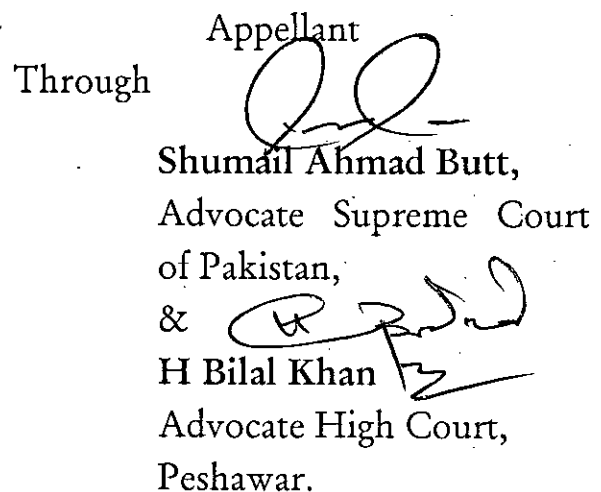 Appellant
Through
Shumail Ahmad Butt,
Advocate Supreme Court
of Pakistan,
&
H Bilal Khan
Advocate High Court,
Peshawar.